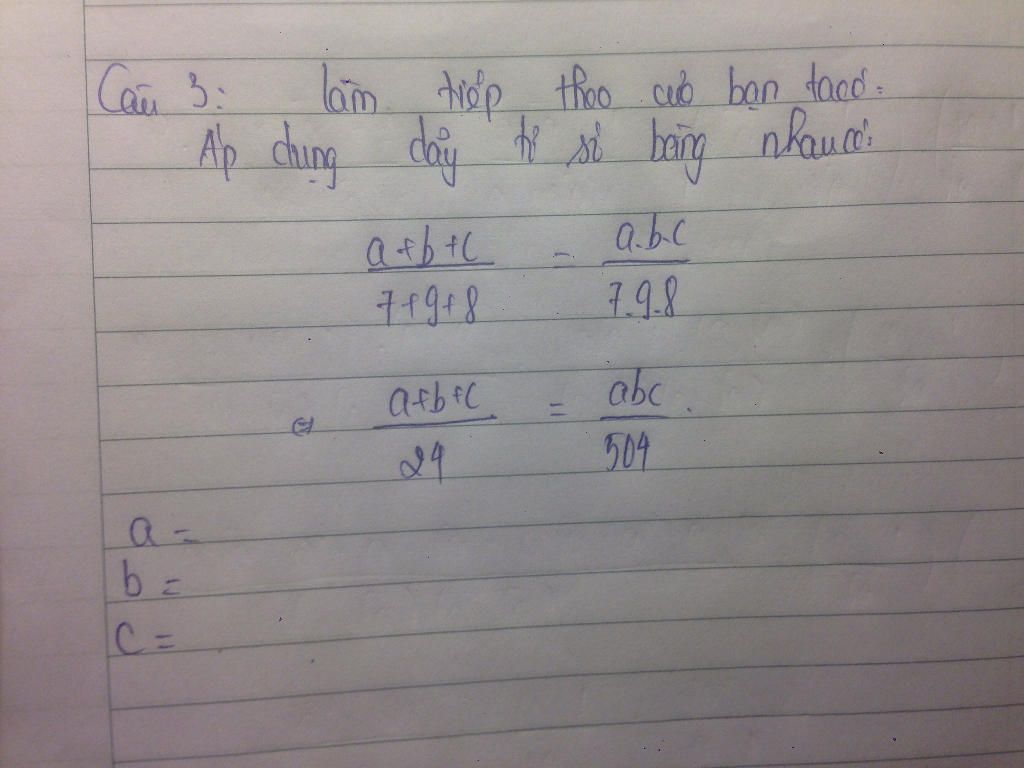 Câu 3: làm tiếp theo của bạn ta có:
Áp dụng dãy tỉ số bằng nhau có:
a+b+c / 7+9+8 = a.b.c / 7.9.8
⇔ a+b+c / 24 = abc / 504 .
a =
b =
c =